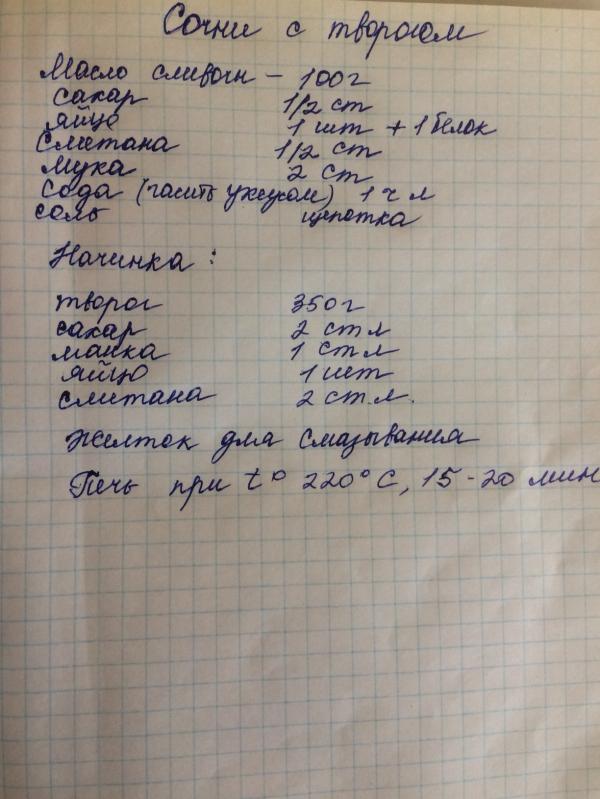 Сочни с творогом
Масло сливочн – 100г
сахар 1/2 ст
яйцо 1 шт + 1 белок
Сметана 1/2 ст
мука 2 ст
Сода (гасить уксусом) 1 ч л
соль щепотка
Начинка:
творог 350г
сахар 2 ст л
манка 1 ст л
яйцо 1 шт
сметана 2 ст.л.
Желток для смазывания
Печь при t° 220°C, 15-20 мин